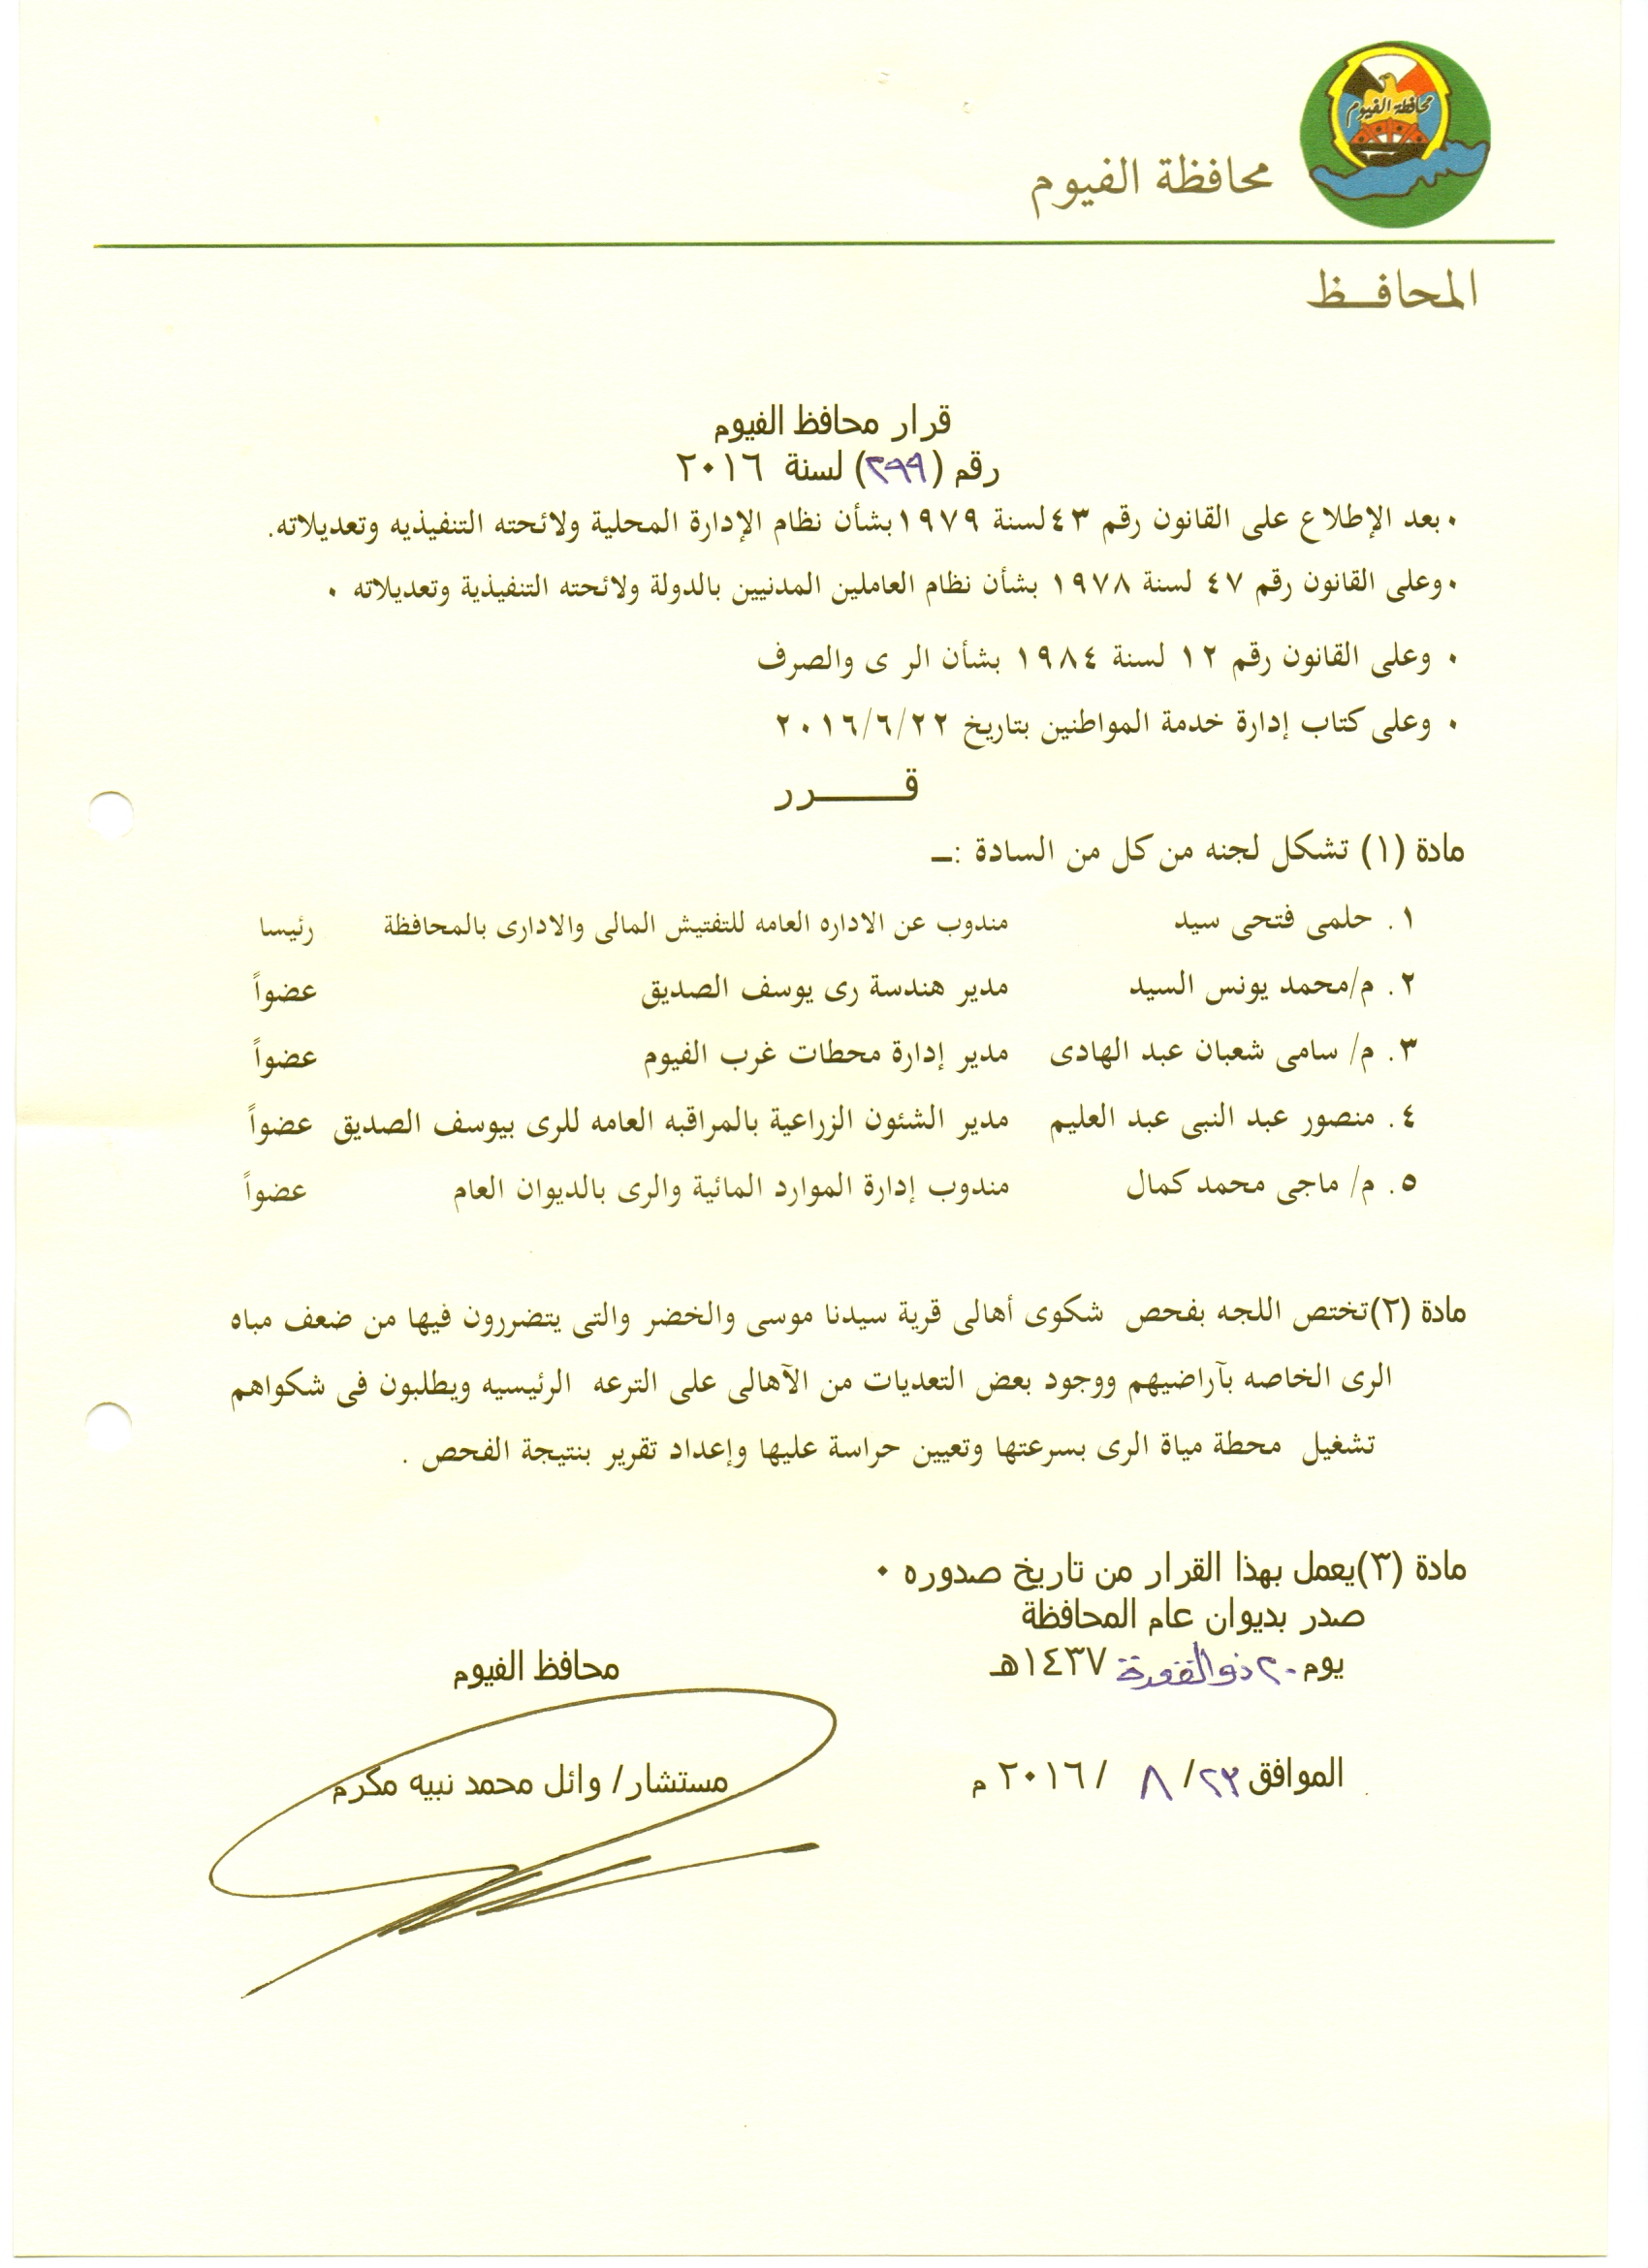 محافظة الفيوم
محافظة الفيوم
المحافـــظ
قرار محافظ الفيوم
رقم (٢٩٩) لسنة ٢٠١٦
٠بعد الإطلاع على القانون رقم ٤٣لسنة ١٩٧٩بشأن نظام الإدارة المحلية ولائحته التنفيذيه وتعديلاته.
٠وعلى القانون رقم ٤٧ لسنة ١٩٧٨ بشأن نظام العاملين المدنيين بالدولة ولائحته التنفيذية وتعديلاته ٠
٠ وعلى القانون رقم ١٢ لسنة ١٩٨٤ بشأن الر ى والصرف
٠ وعلى كتاب إدارة خدمة المواطنين بتاريخ ٢٠١٦/٦/٢٢
قـــــــرر
مادة (١) تشكل لجنه من كل من السادة :ـ
١. حلمى فتحى سيد مندوب عن الاداره العامه للتفتيش المالى والادارى بالمحافظة رئيسا
٢. م/محمد يونس السيد مدير هندسة رى يوسف الصديق عضواً
٣. م/ سامى شعبان عبد الهادى مدير إدارة محطات غرب الفيوم عضواً
٤. منصور عبد النبى عبد العليم مدير الشئون الزراعية بالمراقبه العامه للرى بيوسف الصديق عضواً
٥. م/ ماجى محمد كمال مندوب إدارة الموارد المائية والرى بالديوان العام عضواً
مادة (٢)تختص اللجه بفحص شكوى أهالى قرية سيدنا موسى والخضر والتى يتضررون فيها من ضعف مباه
الرى الخاصه بآراضيهم ووجود بعض التعديات من الآهالى على الترعه الرئيسيه ويطلبون فى شكواهم
تشغيل محطة مياة الرى بسرعتها وتعيين حراسة عليها وإعداد تقرير بنتيجة الفحص .
مادة (٣)يعمل بهذا القرار من تاريخ صدوره ٠
صدر بديوان عام المحافظة
يوم ٢٠ ذو القعدة ١٤٣٧هـ
محافظ الفيوم
الموافق ٢٣/ ٨ / ٢٠١٦ م
مستشار/ وائل محمد نبيه مكرم